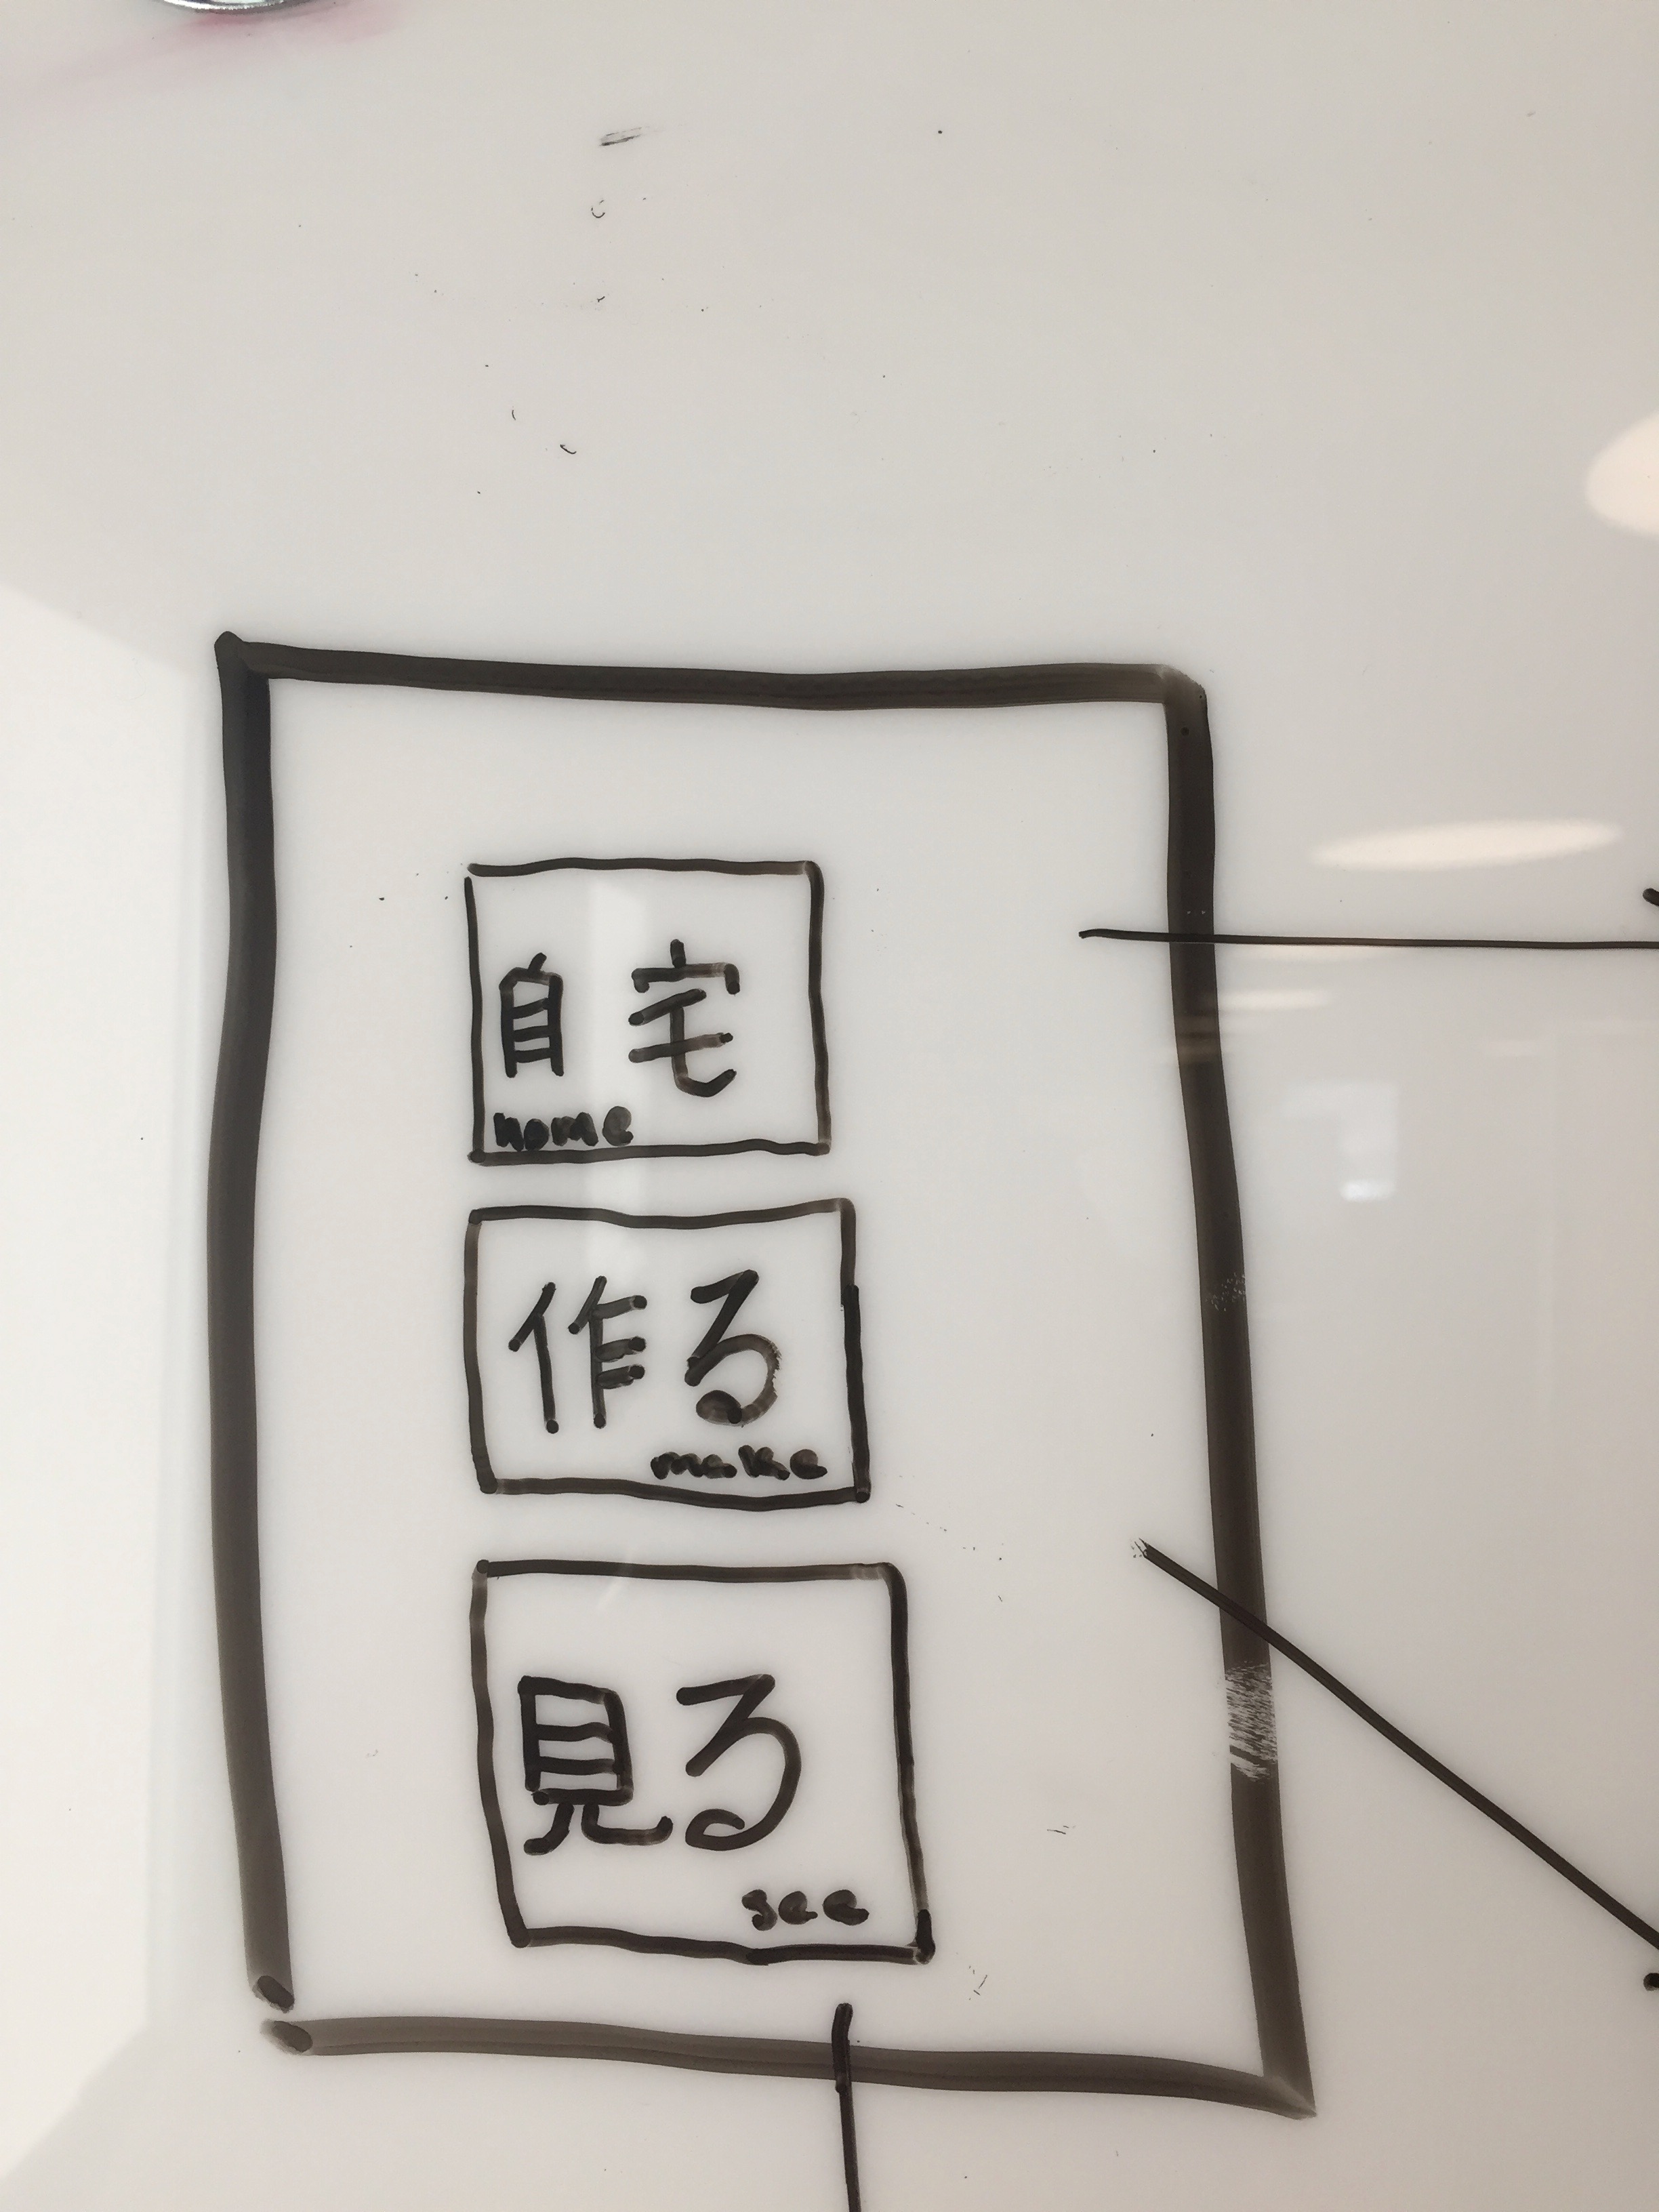 自宅
home
作る
make
見る
see